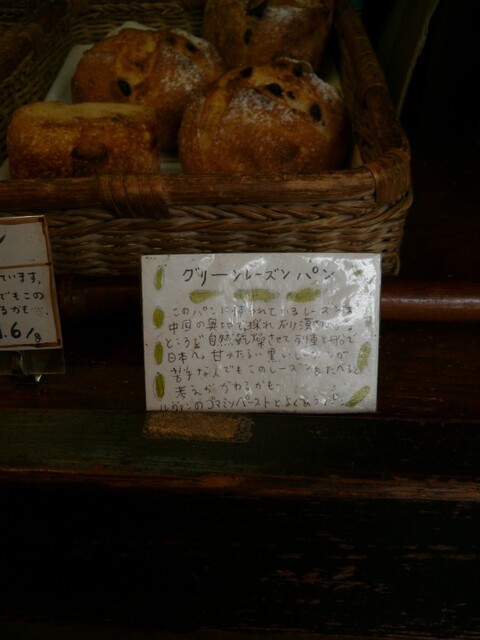 グリーンレーズンパン
このパンに使われているレーズンは
中国の奥地で採れ
ところで自然乾燥させて 船で
日本へ。甘ったるい黒いレーズンが
苦手な人でもこのレーズンをたべると
考えがかわるかも。
ルヴァンのゴマミソペーストとよくあう
ています。
でもこの
るかも
1.6/g